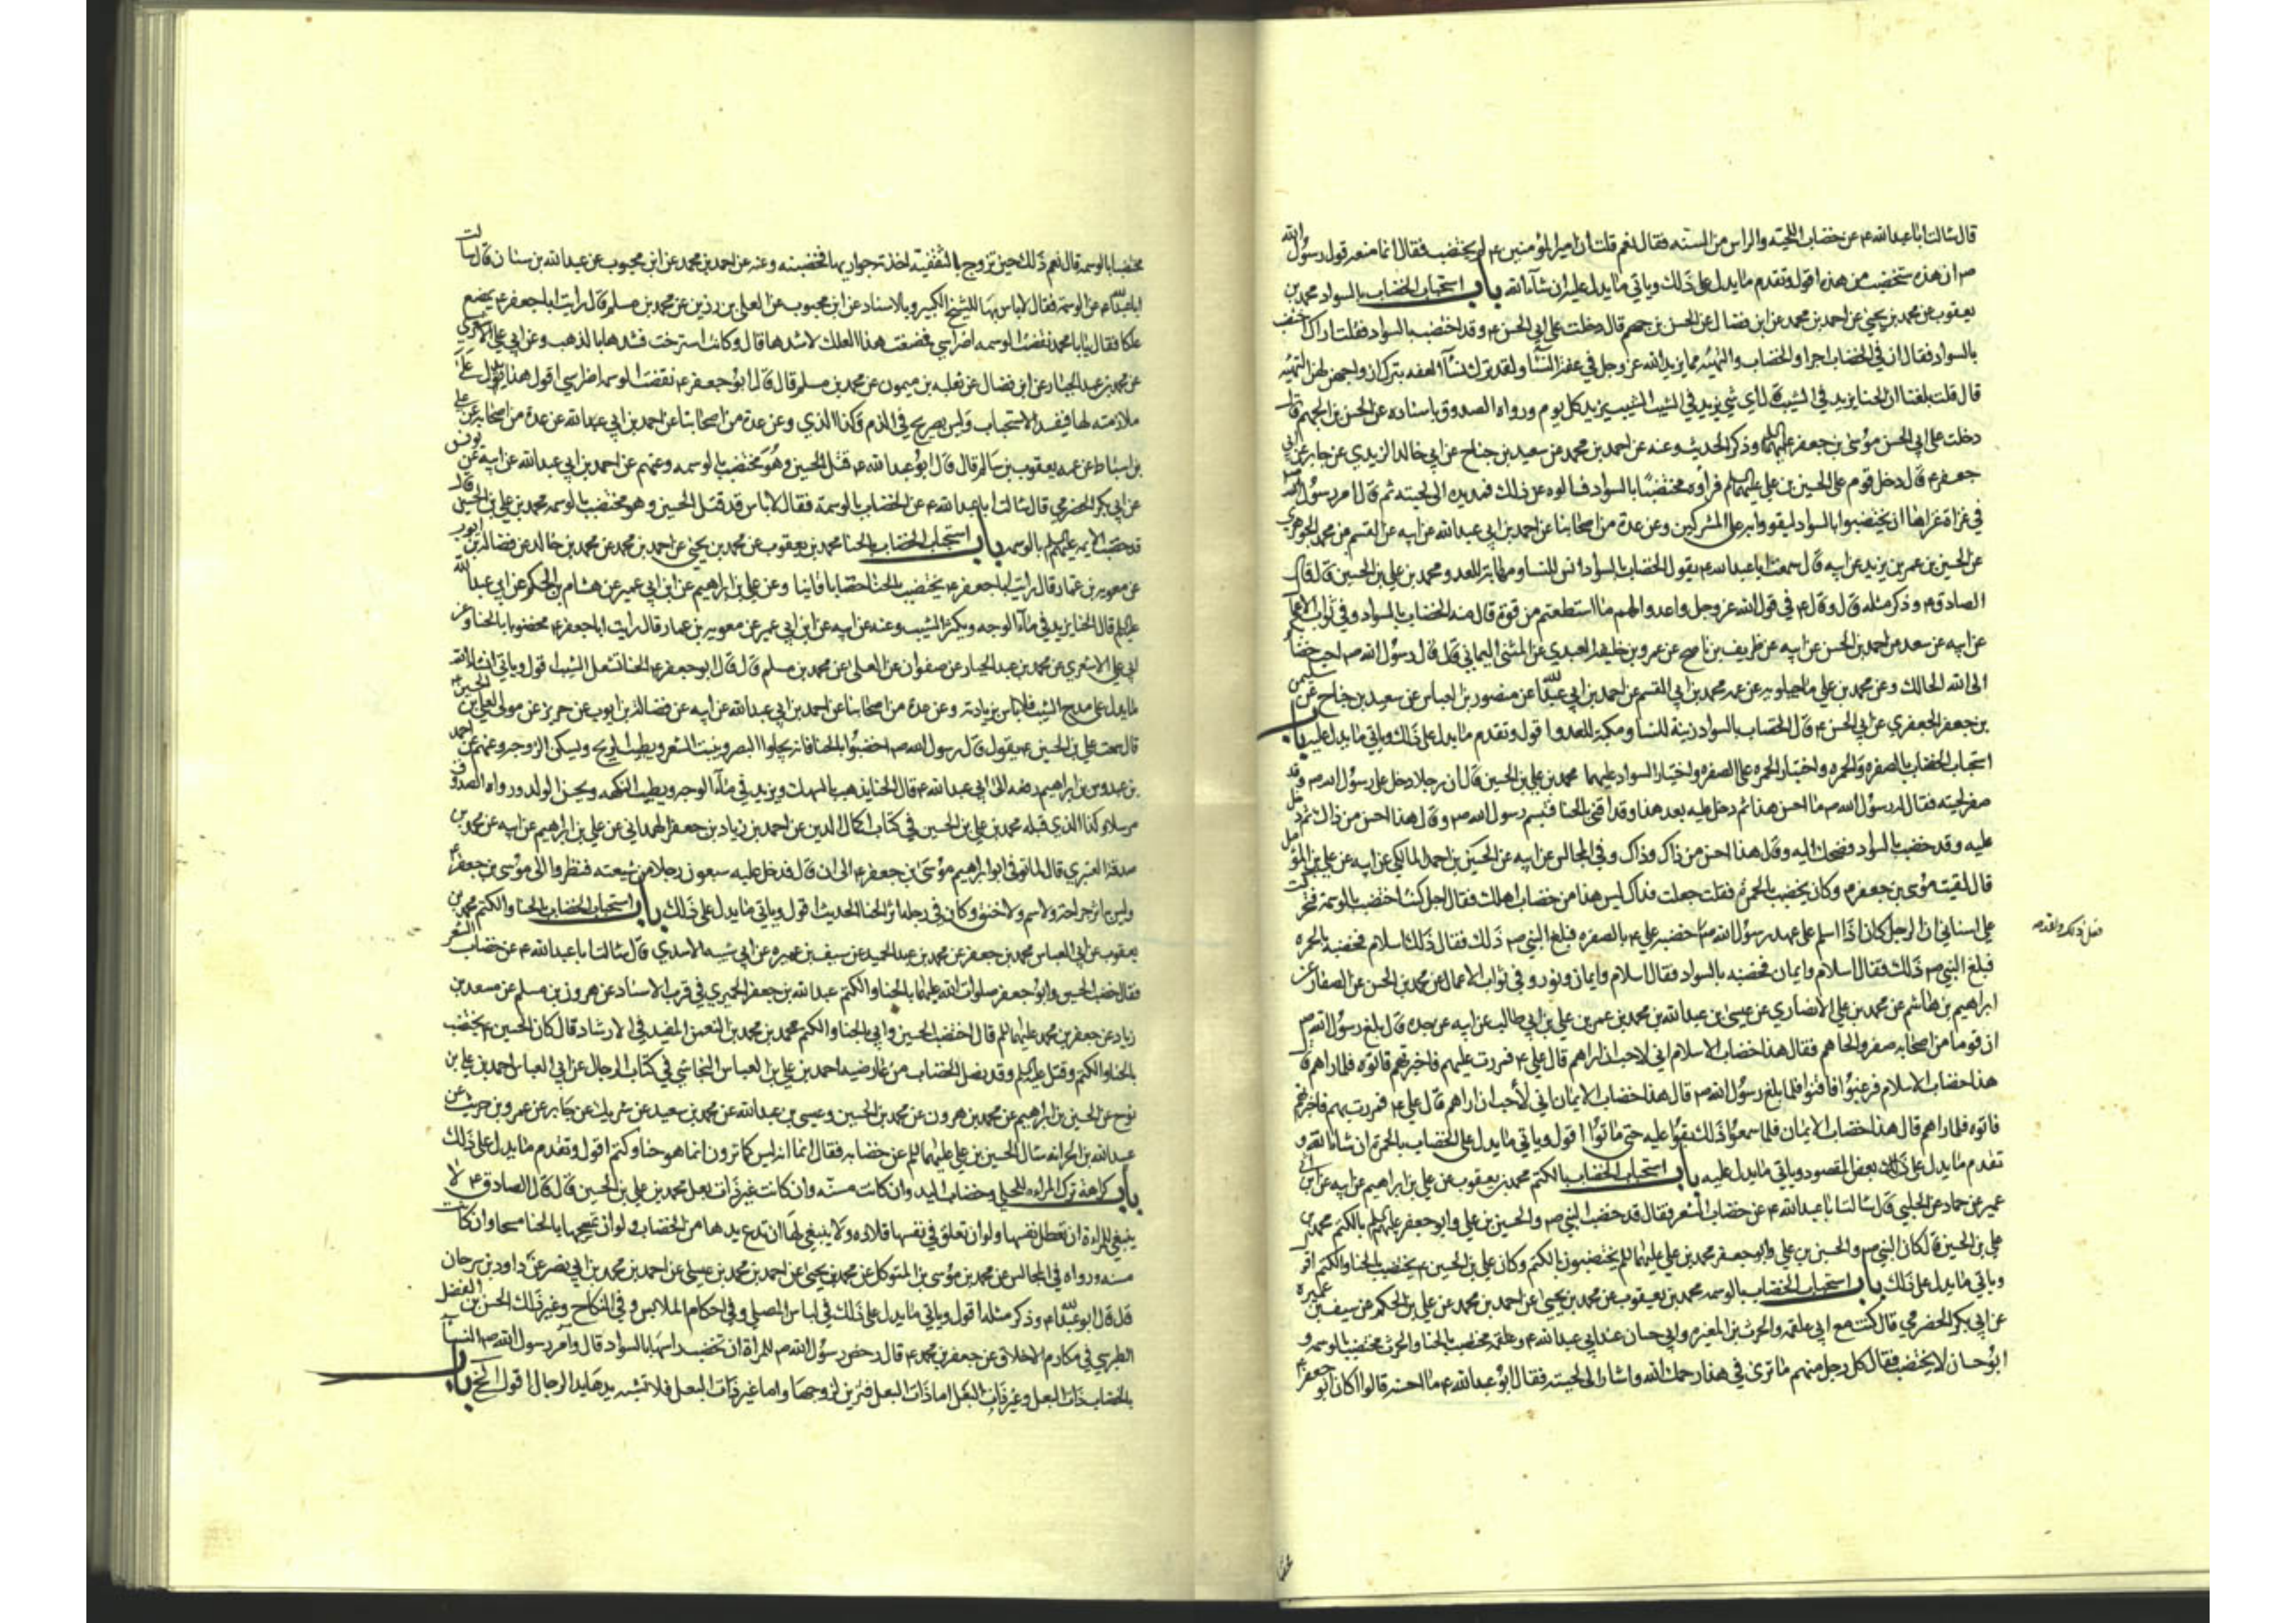 قال سالت ابا عبدالله ع عن خضاب اللحيه والراس من السنه فقال نعم قلت ان امير المؤمنين ع لم يختضب فقال انما منعه قول رسول الله
ص ان هذه ستخضب من هذه اقول وتقدم ما يدل على ذلك وياتي ما يدل عليه ان شاء الله باب استحباب الخضاب بالسواد محمد بن
يعقوب عن محمد بن يحيى عن احمد بن محمد عن ابن فضال عن الحسن بن جهم قال دخلت على ابي الحسن ع وقد اختضب بالسواد فقلت اراك اختضبت
بالسواد فقال ان في الخضاب اجرا والخضاب والتهيئه مما يزيد الله عز وجل في عفة النساء ولقد ترك نساء العفه بترك ازواجهن لهن التهيئه
قال قلت بلغنا ان الحنا يزيد في الشيب قال اي شي يزيد في الشيب الشيب يزيد كل يوم ورواه الصدوق باسناده عن الحسن بن الجهم قال
دخلت على ابي الحسن موسى بن جعفر عليهما وذكر الحديث وعنه عن احمد بن محمد عن سعيد بن جناح عن ابي خالد الزيدي عن جابر عن ابي
جعفر ع قال دخل قوم على الحسين بن علي عليهما فرأوه مختضبا بالسواد فسالوه عن ذلك فمد يده الى لحيته ثم قال امر رسول الله
في غزاة غزاها ان يختضبوا بالسواد ليقووا به على المشركين وعن عدة من اصحابنا عن احمد بن ابي عبدالله عن ابيه عن القسم بن محمد الجوهري
عن الحسين بن عمر بن يزيد عن ابيه قال سمعت ابا عبدالله ع يقول الخضاب بالسواد انس للنسا ومهابة للعدو محمد بن علي بن الحسين قال قال
الصادق ع وذكر مثله قال وقال ع في قول الله عز وجل واعدوا لهم ما استطعتم من قوة قال منه الخضاب بالسواد وفي ثواب الاعمال
عن ابيه عن سعد عن احمد بن الحسن عن ابيه عن ظريف بن ناصح عن عمرو بن خليفه العبدي عن المثنى اليماني قال قال رسول الله ص احب خضابكم
الى الله الحالك وعن محمد بن علي ماجيلويه عن عمه محمد بن ابي القسم عن احمد بن ابي عبدالله عن منصور بن العباس عن سعيد بن جناح عن سليمن
بن جعفر الجعفري عن ابي الحسن ع قال الخضاب بالسواد زينة للنسا ومكبة للعدو اقول وتقدم ما يدل على ذلك وياتي ما يدل عليه باب
استحباب الخضاب بالصفره والحمره واختيار الحمره على الصفره واختيار السواد عليهما محمد بن علي بن الحسين قال ان رجلا دخل على رسول الله ص وقد
صفر لحيته فقال له رسول الله ص ما احسن هذا ثم دخل عليه بعد هذا وقد اقنى بالحنا فتبسم رسول الله ص وقال هذا احسن من ذاك ثم دخل
عليه وقد خضب بالسواد فضحك اليه وقال هذا احسن من ذاك وذاك وفي المجالس عن ابيه عن الحسين بن احمد المالكي عن ابيه عن علي بن المؤمل
قال لقيت موسى بن جعفر ع وكان يخضب بالحمره فقلت جعلت فداك ليس هذا من خضاب اهلك فقال اجل كنت اختضب بالوسمة فتحركت
علي اسناني ان الرجل كان اذا اسلم على عهد رسول الله ص خضبه علي ع بالصفره فبلغ النبي ص ذلك فقال ذلك اسلام فخضبه بالحمره
فبلغ النبي ص ذلك فقال اسلام وايمان فخضبه بالسواد فقال اسلام وايمان ونور وفي ثواب الاعمال عن محمد بن الحسن عن الصفار عن
ابراهيم بن هاشم عن محمد بن علي الانصاري عن عيسى بن عبدالله بن محمد بن عمر بن علي بن ابي طالب عن ابيه عن جده قال بلغ رسول الله ص
ان قوما من اصحابه صفروا لحاهم فقال هذا خضاب الاسلام اني لاحب ان اراهم قال علي ع فمررت عليهم فاخبرتهم فاتوه فلما راهم قال
هذا خضاب الاسلام فرغبوا فاقنوا فلما بلغ رسول الله ص قال هذا خضاب الايمان اني لأحب ان اراهم قال علي ع فمررت بهم فاخبرتهم
فاتوه فلما راهم قال هذا خضاب الايمان فلما سمعوا ذلك بقوا عليه حتى ماتوا اقول وياتي ما يدل على الخضاب بالحمره ان شا الله و
تقدم ما يدل على ذلك بعض المقصود وياتي ما يدل عليه باب استحباب الخضاب بالكتم محمد بن يعقوب عن علي بن ابراهيم عن ابيه عن ابن ابي
عمير عن حماد عن الحلبي قال سالت ابا عبدالله ع عن خضاب الشعر فقال قد خضب النبي ص والحسين بن علي وابو جعفر عليهم بالكتم محمد بن
علي بن الحسين قال كان النبي ص والحسين بن علي وابو جعفر محمد بن علي عليهما يختضبون بالكتم وكان علي بن الحسين ع يختضب بالحنا والكتم اقول
وياتي ما يدل على ذلك باب استحباب الخضاب بالوسمه محمد بن يعقوب عن محمد بن يحيى عن احمد بن محمد عن علي بن الحكم عن سيف بن عميره
عن ابي بكر الحضرمي قال كنت مع ابي علقمه والحرث بن المغيره وابي حسان عند ابي عبدالله ع وعلقمه مختضب بالحنا والحرث مختضب بالوسمه و
ابو حسان لا يختضب فقال كل رجل منهم ما ترى في هذا رحمك الله واشار الى لحيته فقال ابو عبدالله ع ما احسنه قالوا اكان ابو جعفر ع
مختضبا بالوسمه قال نعم ذلك حين تزوج بالثقفيه اخذته جواريها فخضبنه وعنه عن احمد بن محمد عن ابن محبوب عن عبدالله بن سنان قال سالت
ابا عبدالله ع عن الوسمة فقال لا باس بها للشيخ الكبير وبالاسناد عن ابن محبوب عن العلا بن رزين عن محمد بن مسلم قال رايت ابا جعفر ع يمضغ
علكا فقال يا محمد نقضت الوسمه اضراسي فمضغت هذا العلك لاشدها قال وكانت استرخت فشدها بالذهب وعن ابي علي الاشعري
عن محمد بن عبد الجبار عن ابن فضال عن ثعلبه بن ميمون عن محمد بن مسلم قال قال ابو جعفر ع نقضت الوسمه اضراسي اقول هذا يدل على
ملازمته لها فيفيد الاستحباب وليس بصريح في الذم وكذا الذي وعن عدة من اصحابنا عن احمد بن ابي عبدالله عن عدة من اصحابه عن علي
بن اسباط عن عمه يعقوب بن سالم قال قال ابو عبدالله ع قتل الحسين وهو مختضب بالوسمه وعنهم عن احمد بن ابي عبدالله عن ابيه عن يونس
عن ابي بكر الحضرمي قال سالت ابا عبدالله ع عن الخضاب بالوسمة فقال لا باس قد قتل الحسين وهو مختضب بالوسمه محمد بن علي بن الحسين قال
قد خضب الايمه عليهم بالوسمه باب استحباب الخضاب بالحنا محمد بن يعقوب عن محمد بن يحيى عن احمد بن محمد عن محمد بن خالد عن فضاله بن ايوب
عن معويه بن عمار قال رايت ابا جعفر ع يختضب بالحنا خضابا قانيا وعن علي بن ابراهيم عن ابن ابي عمير عن هشام بن الحكم عن ابي عبدالله
عليه قال الحنا يزيد في ماء الوجه ويكثر الشيب وعنه عن ابيه عن ابن ابي عمير عن معويه بن عمار قال رايت ابا جعفر ع مخضوبا بالحنا وعن
ابي علي الاشعري عن محمد بن عبد الجبار عن صفوان عن العلا عن محمد بن مسلم قال قال ابو جعفر ع الحنا تشعل الشيب اقول وياتي ان شا الله
ما يدل على مدح الشيب فلا باس بزيادته وعن عدة من اصحابنا عن احمد بن ابي عبدالله عن ابيه عن فضالة بن ايوب عن حريز عن مولى لعلي بن الحسين ع
قال سمعت علي بن الحسين ع يقول قال رسول الله ص اخضبوا بالحنا فانه يجلوا البصر وينبت الشعر ويطيب الريح ويسكن الزوجه وعنهم عن احمد
بن عبدوس بن ابراهيم رفعه الى ابي عبدالله ع قال الحنا يذهب بالسهك ويزيد في ماء الوجه ويطيب النكهه ويحسن الولد ورواه الصدوق
مرسلا وكذا الذي قبله محمد بن علي بن الحسين في كتاب اكمال الدين عن احمد بن زياد بن جعفر الهمداني عن علي بن ابراهيم عن ابيه عن محمد بن
صدقة العنبري قال لما توفي ابو ابراهيم موسى بن جعفر ع الى ان قال فدخل عليه سبعون رجلا من شيعته فنظروا الى موسى بن جعفر ع
وليس به اثر جراحة ولا سم ولا خنق وكان في رجله اثر الحنا الحديث اقول وياتي ما يدل على ذلك باب استحباب الخضاب بالحنا والكتم محمد بن
يعقوب عن ابي العباس محمد بن جعفر عن محمد بن عبد الحميد عن سيف بن عميره عن ابي شيبه الاسدي قال سالت ابا عبدالله ع عن خضاب الشعر
فقال خضب الحسين وابو جعفر صلوات الله عليهما بالحنا والكتم عبدالله بن جعفر الحميري في قرب الاسناد عن هرون بن مسلم عن مسعده بن
زياد عن جعفر بن محمد عليهما قال اختضب الحسين وابي بالحنا والكتم محمد بن محمد بن النعمن المفيد في الارشاد قال كان الحسين ع يختضب
بالحنا والكتم وقتل عليه وقد نصل الخضاب من عارضيه احمد بن علي بن العباس النجاشي في كتاب الرجال عن ابي العباس احمد بن علي بن
نوح عن الحسين بن ابراهيم عن محمد بن هرون عن محمد بن الحسين وعيسى بن عبدالله عن محمد بن سعيد عن شريك عن جابر عن عمرو بن حريث عن
عبدالله بن الحر انه سال الحسين بن علي عليهما عن خضابه فقال اما انه ليس كما ترون انما هو حنا وكتم اقول وتقدم ما يدل على ذلك
باب كراهة ترك المراه للحلي وخضاب اليد وان كانت مسنه وان كانت غير ذات بعل محمد بن علي بن الحسين قال قال الصادق ع لا
ينبغي للمراة ان تعطل نفسها ولو ان تعلق في نفسها قلاده ولا ينبغي لها ان تدع يدها من الخضاب ولو ان تمسحها بالحنا مسحا وان كانت
مسنه ورواه في المجالس عن محمد بن موسى بن المتوكل عن محمد بن يحيى عن احمد بن محمد بن عيسى عن احمد بن محمد بن ابي نصر عن داود بن سرحان
قال قال ابو عبدالله ع وذكر مثله اقول وياتي ما يدل على ذلك في لباس المصلي وفي احكام الملابس وفي النكاح وغير ذلك الحسن بن الفضل
الطبرسي في مكارم الاخلاق عن جعفر بن محمد ع قال رخص رسول الله ص للمراة ان تخضب راسها بالسواد قال وأمر رسول الله ص النساء
بالخضاب ذات البعل وغير ذات البعل اما ذات البعل فتزين لزوجها واما غير ذات البعل فلا تشبه يدها يد الرجال اقول باب